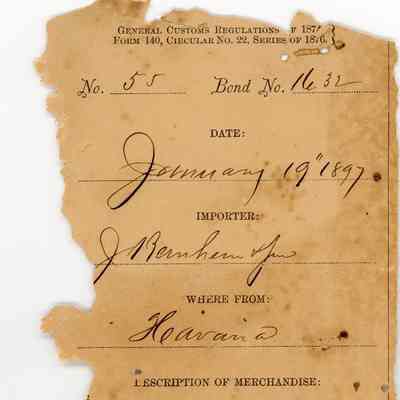 General Customs Regulations of 187
Form 140, Circular No. 22, Series of 1876.
No. 55 Bond No. 1632
DATE:
January 19" 1897
IMPORTER:
J Bernheim & Son
WHERE FROM:
Havana
DESCRIPTION OF MERCHANDISE: